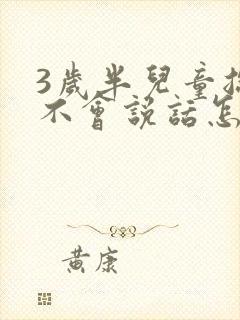 3歲半兒童
不會說話怎
黃康